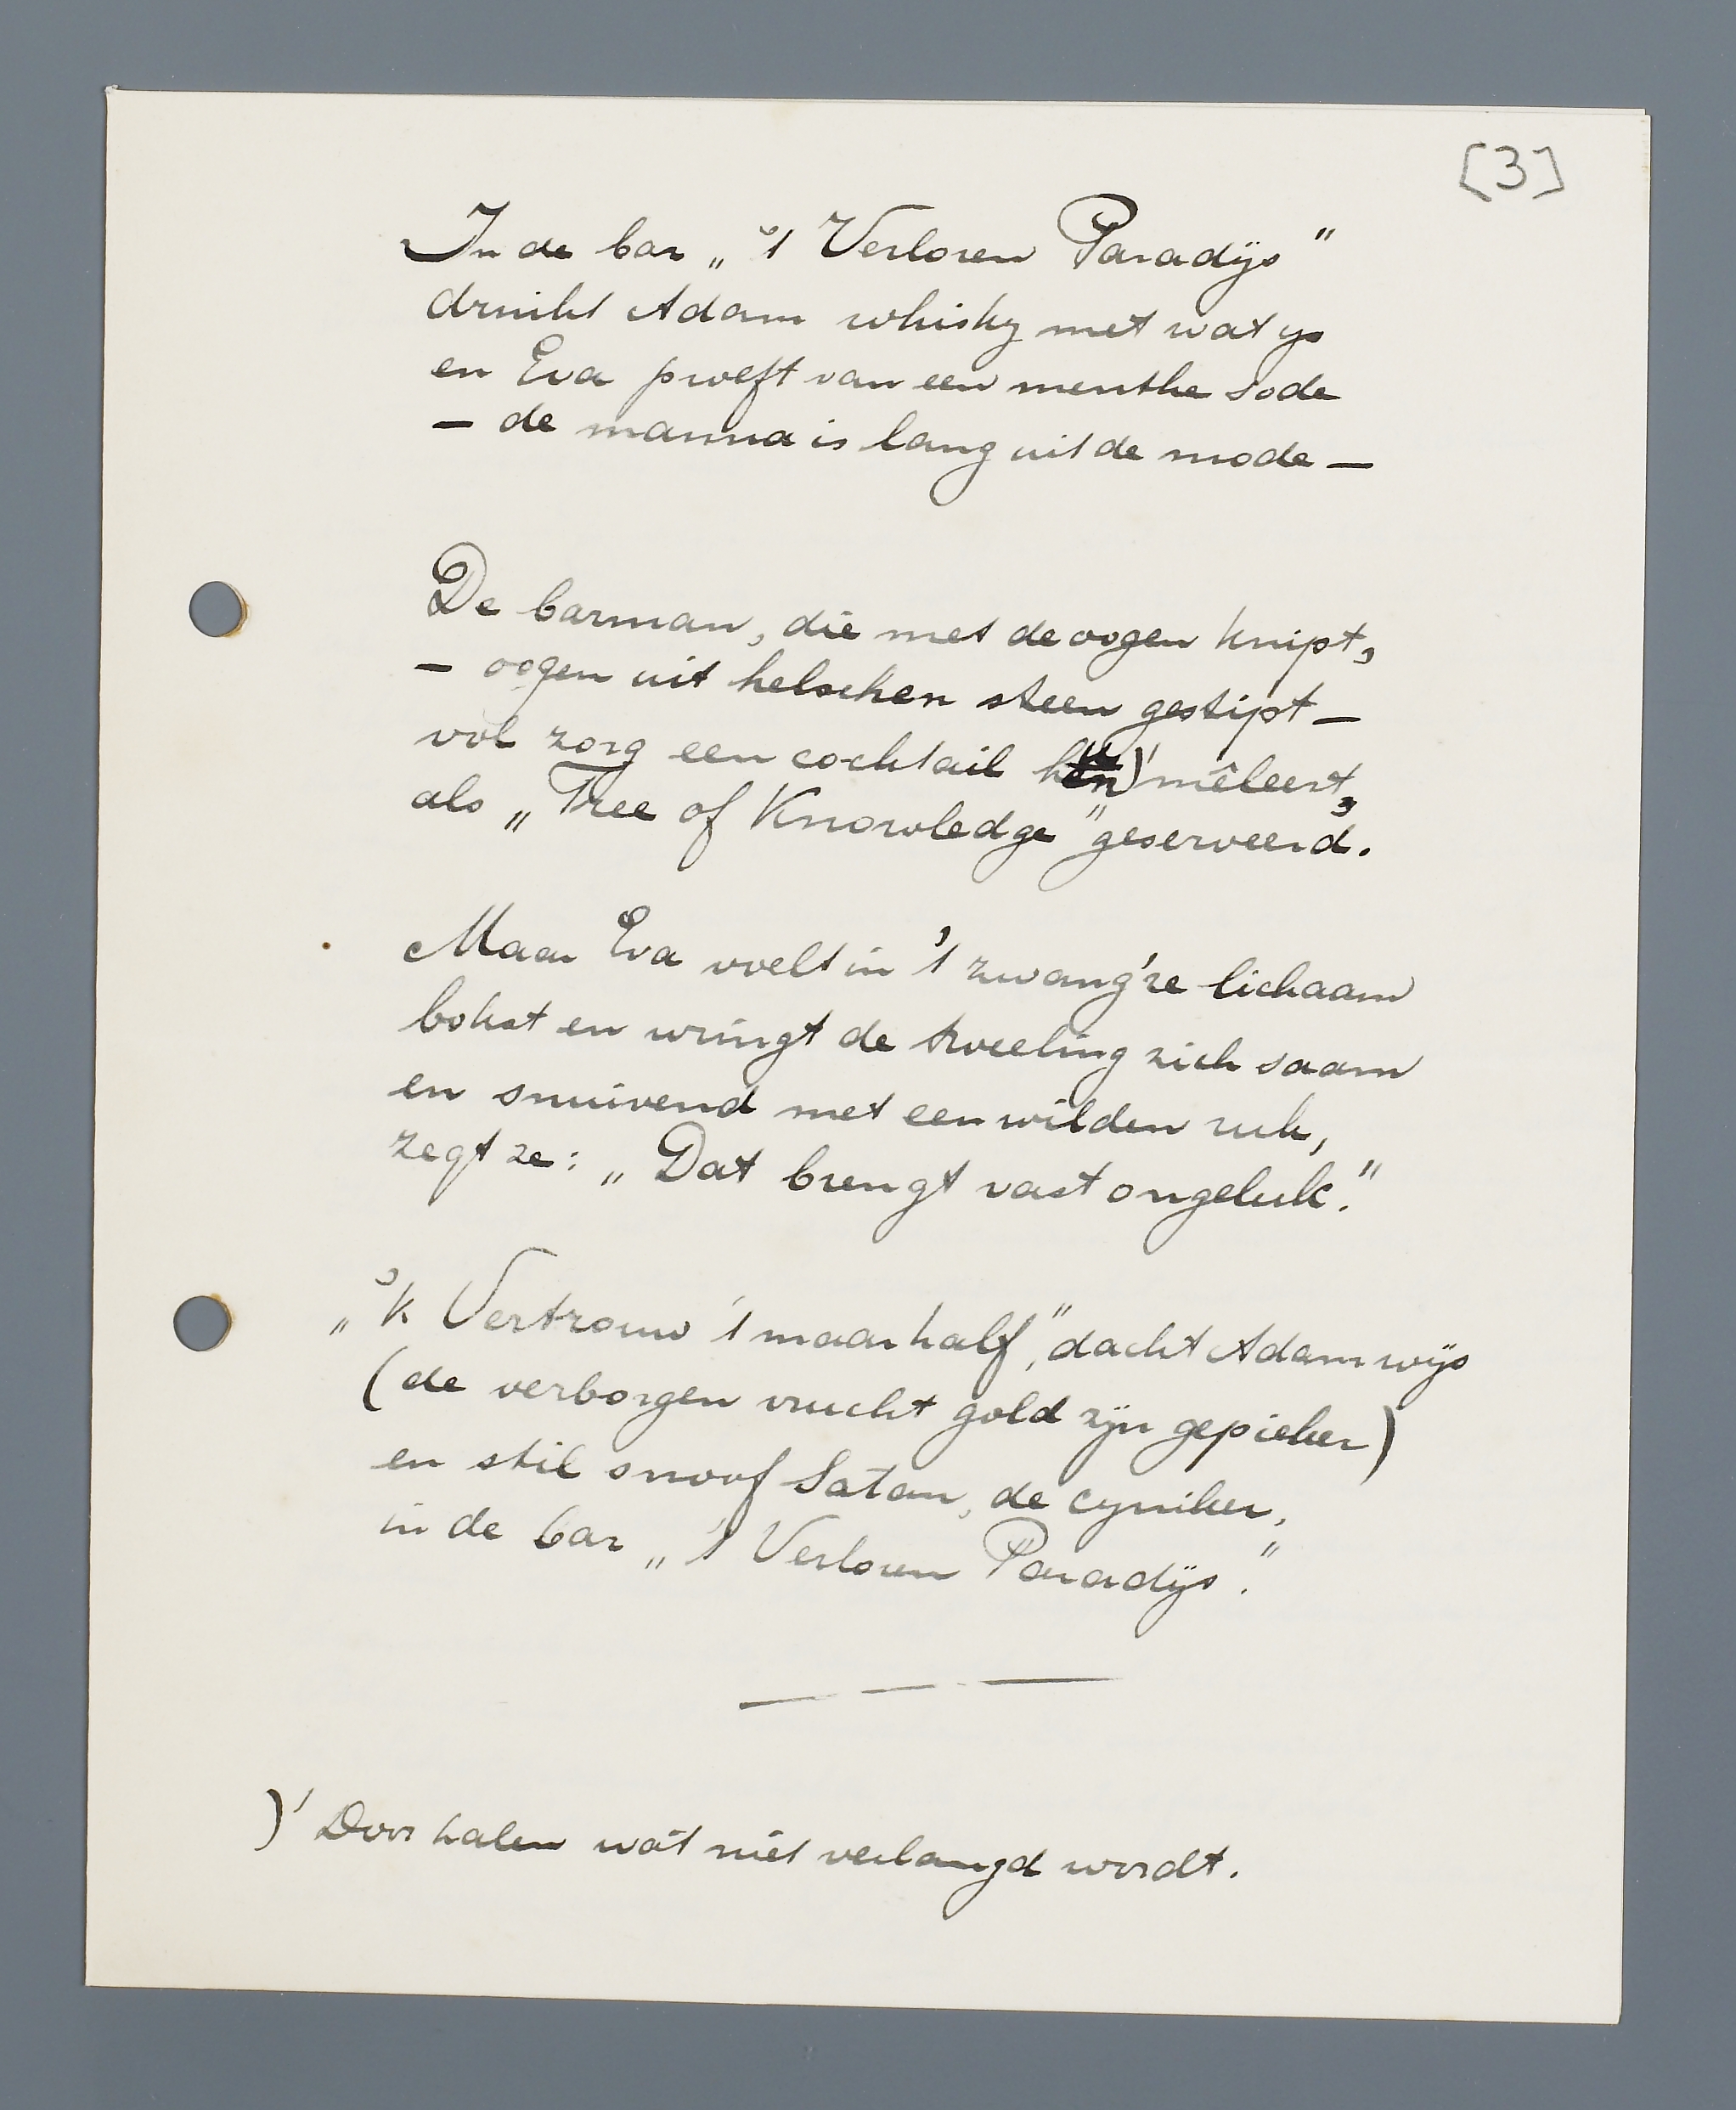 [3]
In de bar „'t Verloren Paradijs"
drinkt Adam whisky met wat ijs
en Eva proeft van een menthe sode
— de manna is lang uit de mode —
De barman, die met de oogen knipt,
— oogen uit helschen steen gestipt —
vol zorg een cocktail hen)' mêleert,
als „Tree of Knowledge" geserveerd.
Maar Eva voelt in 't zwang're lichaam
bokst en wringt de tweeling zich saam
en snuivend met een wilden ruk,
zegt ze: „Dat brengt vast ongeluk."
„'k Vertrouw 't maar half," dacht Adam wijs
(de verborgen vrucht gold zijn gepieker)
en stil snoof Satan, de cynieker,
in de bar „'t Verloren Paradijs."
)' Doorhalen wat niet verlangd wordt.